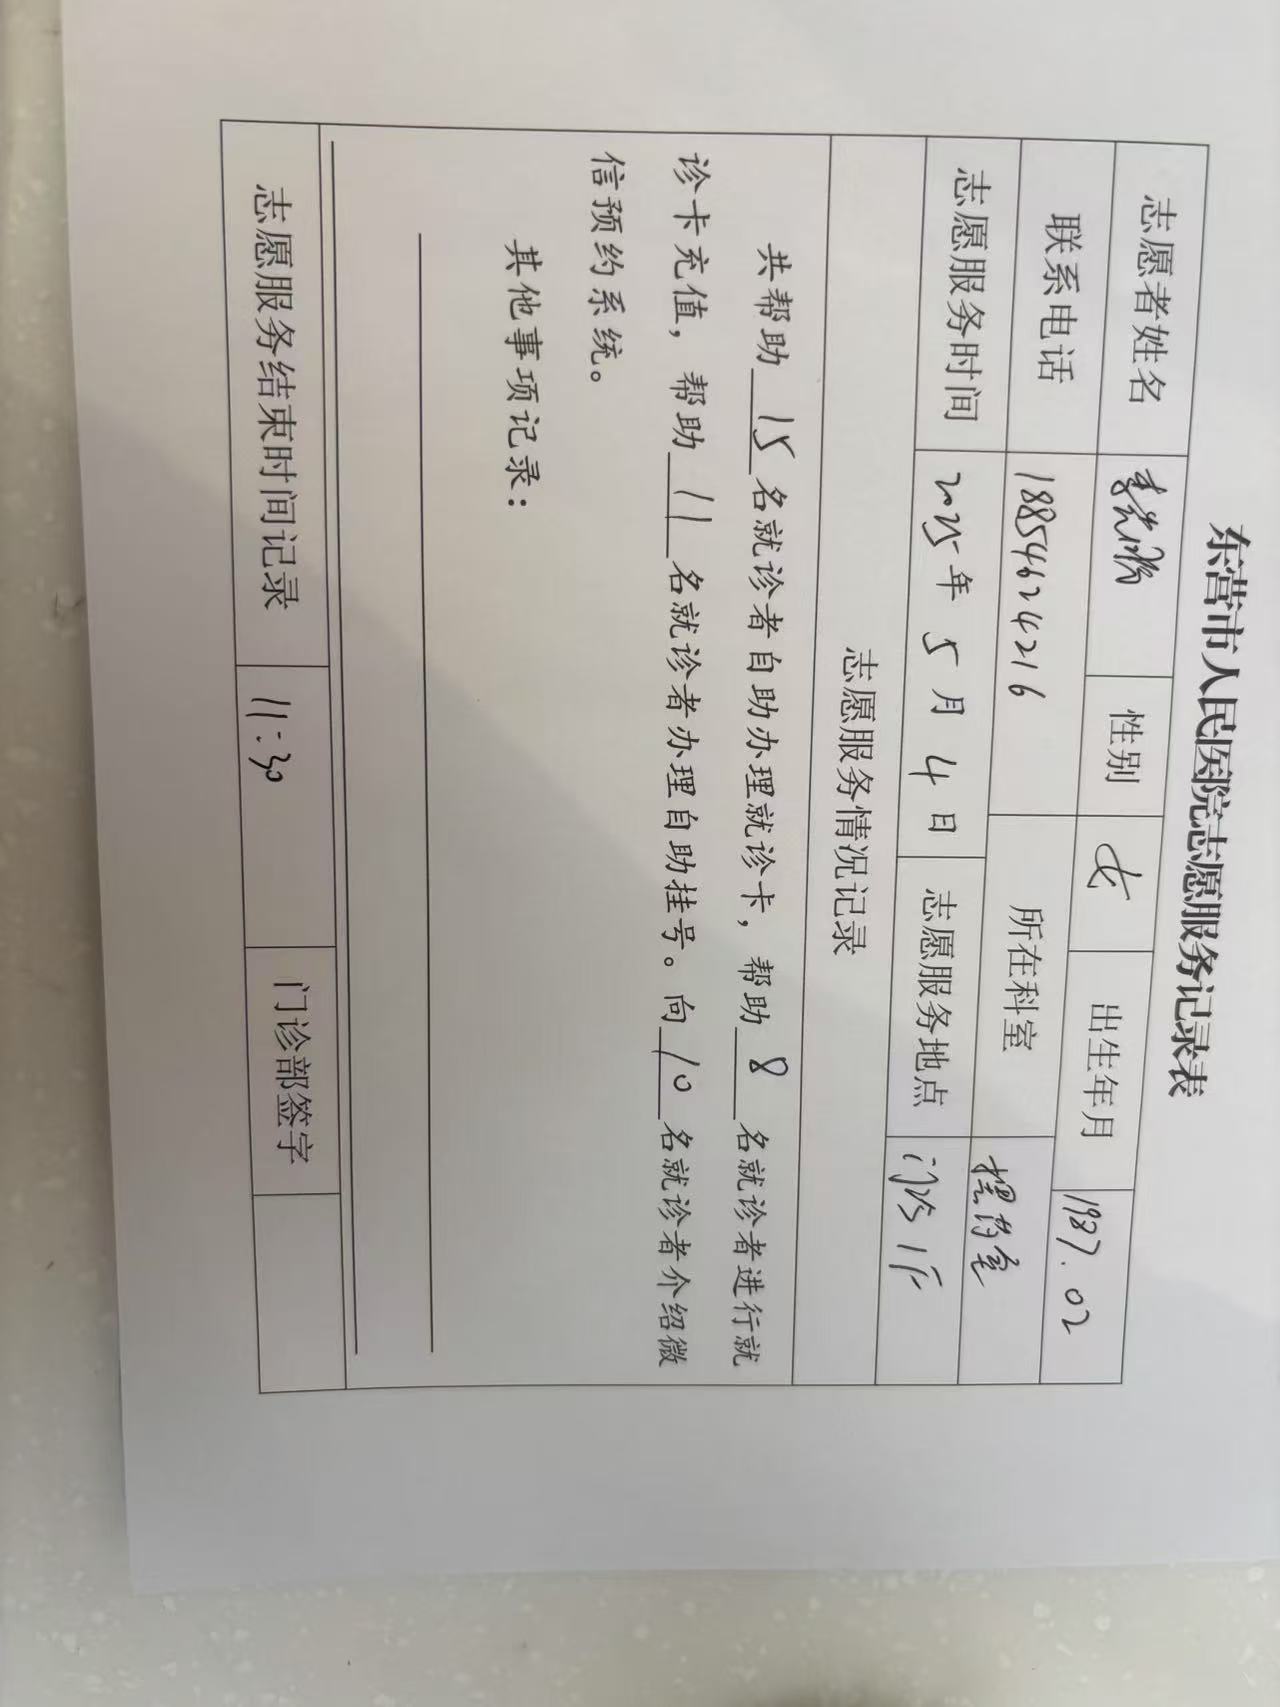 东营市人民医院志愿服务记录表
志愿者姓名 性别 女 出生年月 1987.02
联系电话 18854624216 所在科室 摆药室
志愿服务时间 2025年 5月 4日 志愿服务地点 门诊1F
志愿服务情况记录
共帮助 15 名就诊者自助办理就诊卡，帮助 8 名就诊者进行就
诊卡充值，帮助 11 名就诊者办理自助挂号。向 10 名就诊者介绍微
信预约系统。
其他事项记录：
志愿服务结束时间记录 11:30 门诊部签字